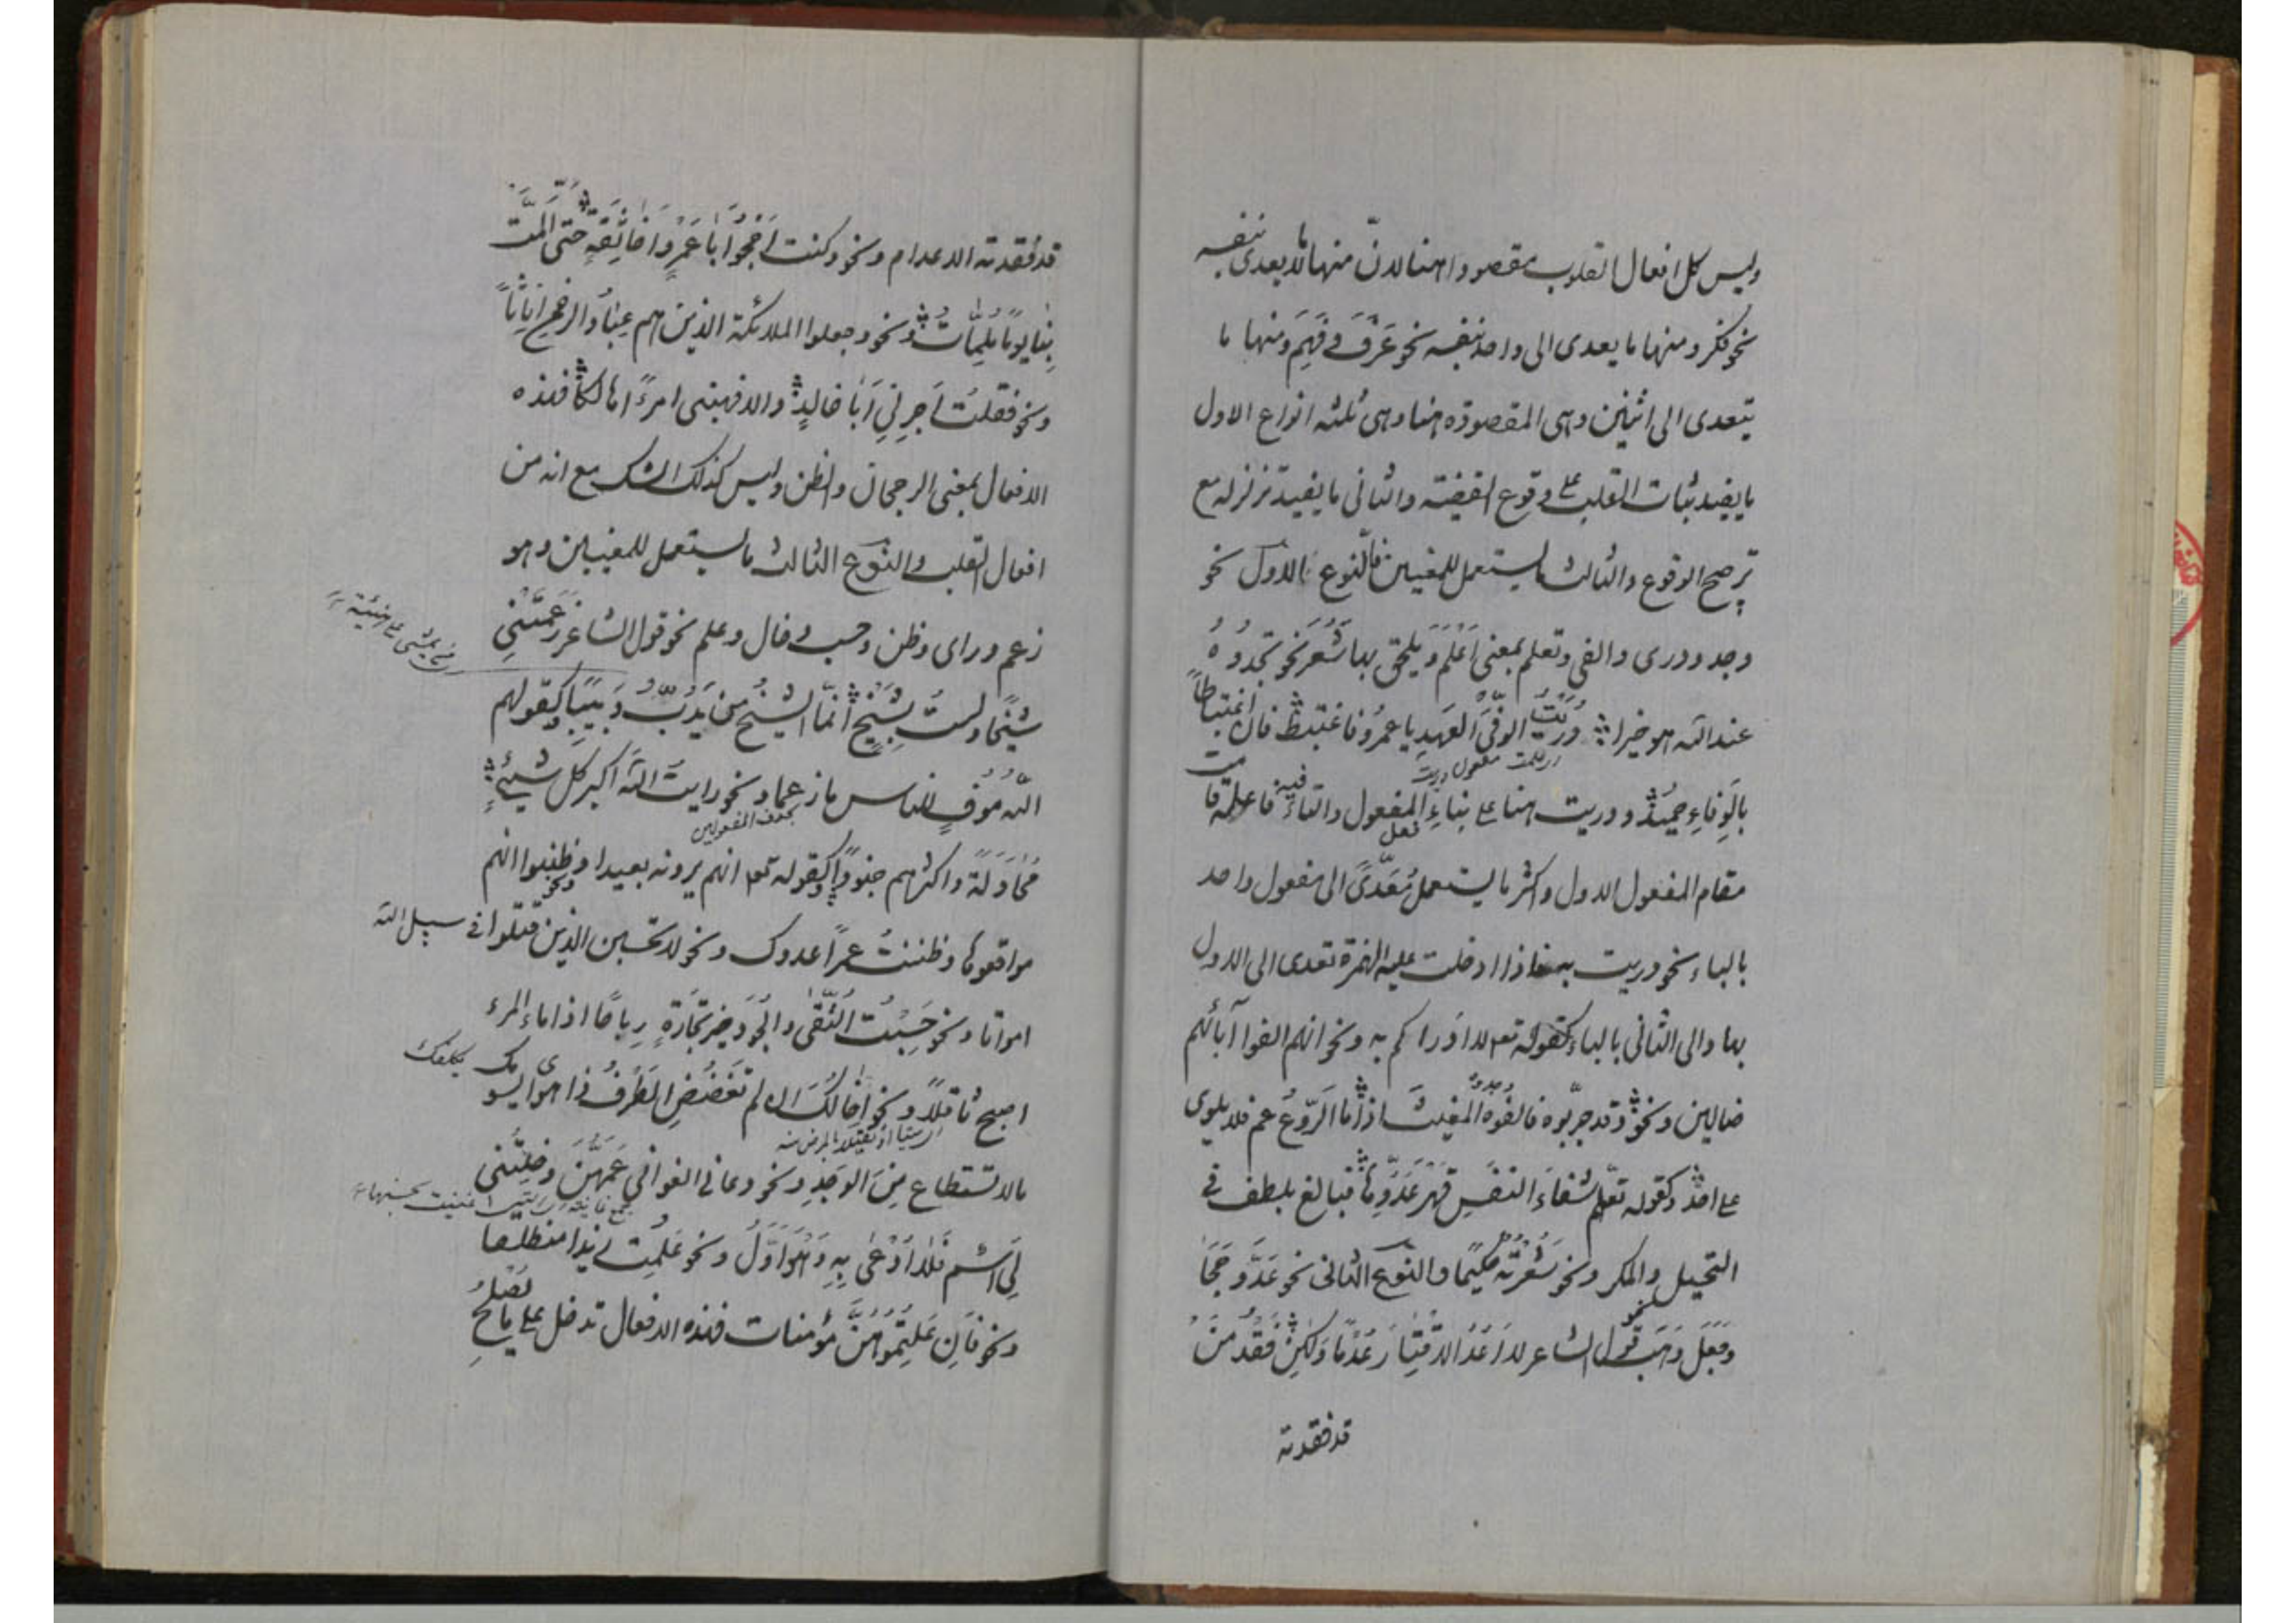 وليس كل افعال القلوب مقصودا هنا لانّ منها ما لا يعدى بنفسه
نحو فكر ومنها ما يعدى الى واحد بنفسه نحو عَرَفَ وفَهِمَ ومنها ما
يتعدى الى اثنين وهى المقصودة هنا وهى ثلثه انواع الاول
ما يفيد ثبات القلب على وقوع القضية والثانى ما يفيد تزلزله مع
ترجيح الوقوع والثالث ما يستعمل للمعنيين فالنوع الاول نحو
وجد ودرى والفى وتعلم بمعنى اَعْلَمْ ويلحق بها شَعَرَ نحو تجدُوهُ
عند الله هو خيرا دُرِيْتَ الوَفىَّ العَهدِ يا عمرُو فاغتبط فان اغتباطاً
اى علمت مفعول دريت
بالوفاءِ حميدٌ ودريت هنا على بناءِ المفعول والتاء فيه فاعله قامت
مقام المفعول الاول واكثر ما يستعمل فعل مُعَدّىً الى مفعول واحد
بالباء نحو دريت به فاذا ادخلت عليه الهمزة تعدى الى الاول
بها والى الثانى بالباء كقوله تع ولا ادراكم به ونحو انهم الفوا آبائهم
ضالين ونحو وقد جرّبوه فالفَوْهُ المغيث اذا ما الرّوعُ عم فلا يلوى
على احدٍ وكقوله تعلّم شفاءَ النفسِ قهرَ عَدُوِّها فبالغ بلطف فى
التحيل والمكر ونحو شَعَرْتُهُ حكيمًا والنوع الثانى نحو عَدَّ وحَجَا
وجَعَلَ وهَبْ نحو قول الشاعر لا اَعُدُّ الاقتارَ عُدْمًا ولكن فَقْدُ مَنْ
قد فقدته
قد فقدته الاعدام ونحو وكنت اَحْجُو اَبا عَمْرٍو اَخا ثِقَةٍ حتى اَلَمَّتْ
بِنا يومًا مُلِمّاتُ ونحو وجعلوا الملائكة الذين هم عِبادُ الرحمن اِناثاً
ونحو فقلتُ اَجِرْنِي اَبا خالدٍ والا فهبنى امرءً اها لكا فهذه
الافعال بمعنى الرجحان والظن وليس كذلك الشك مع انه من
افعال القلب والنوع الثالث ما يستعمل للمعنيين وهو
زعم وراى وظن وحسب وخال وعلم نحو قول الشاعر زَعَمَتْنِي
شيخًا ولستُ بِشَيْخٍ اِنّما الشيخُ مَن يَدُبُّ دَبيبًا وكقولهم
اللّه مُوفٍ للناس ما زعموا ونحو رايتُ اللّهَ اكبر كل شيئٍ
بحذف المفعولين
مُحاوَلةً واكثرهم جنودًا وكقوله تع انهم يرونه بعيدا ونحو وظنوا انهم
مواقعوها وظننتُ عمرًا عدوك ونحو لا تحسبن الذين قتلوا فى سبيل الله
امواتا ونحو حَسِبْتُ التُّقى والجُودَ خيرَ تجارةٍ رباحًا اذا ما المرء
اصبح ثاقلاً ونحو اِخالُكَ اِن لم تَغضُضِ الطَرْفَ ذا هوى يسومك
يكلفك
اى ميتا او ثقيلا بالمرض منه
ما لا يستطاع مِنَ الوَجْدِ ونحو دعانى الغوانى عَمَّهُنَّ وخِلْتُنى
لِيَ اسْم فلا اُدْعى بِهِ وَهُوَ اَوَّلُ ونحو عَلِمْتُ زيدا منطلقا
ونحو فاِن عَلِمْتُمُوهُنَّ مؤمنات فهذه الافعال تدخل على ما يصلحُ